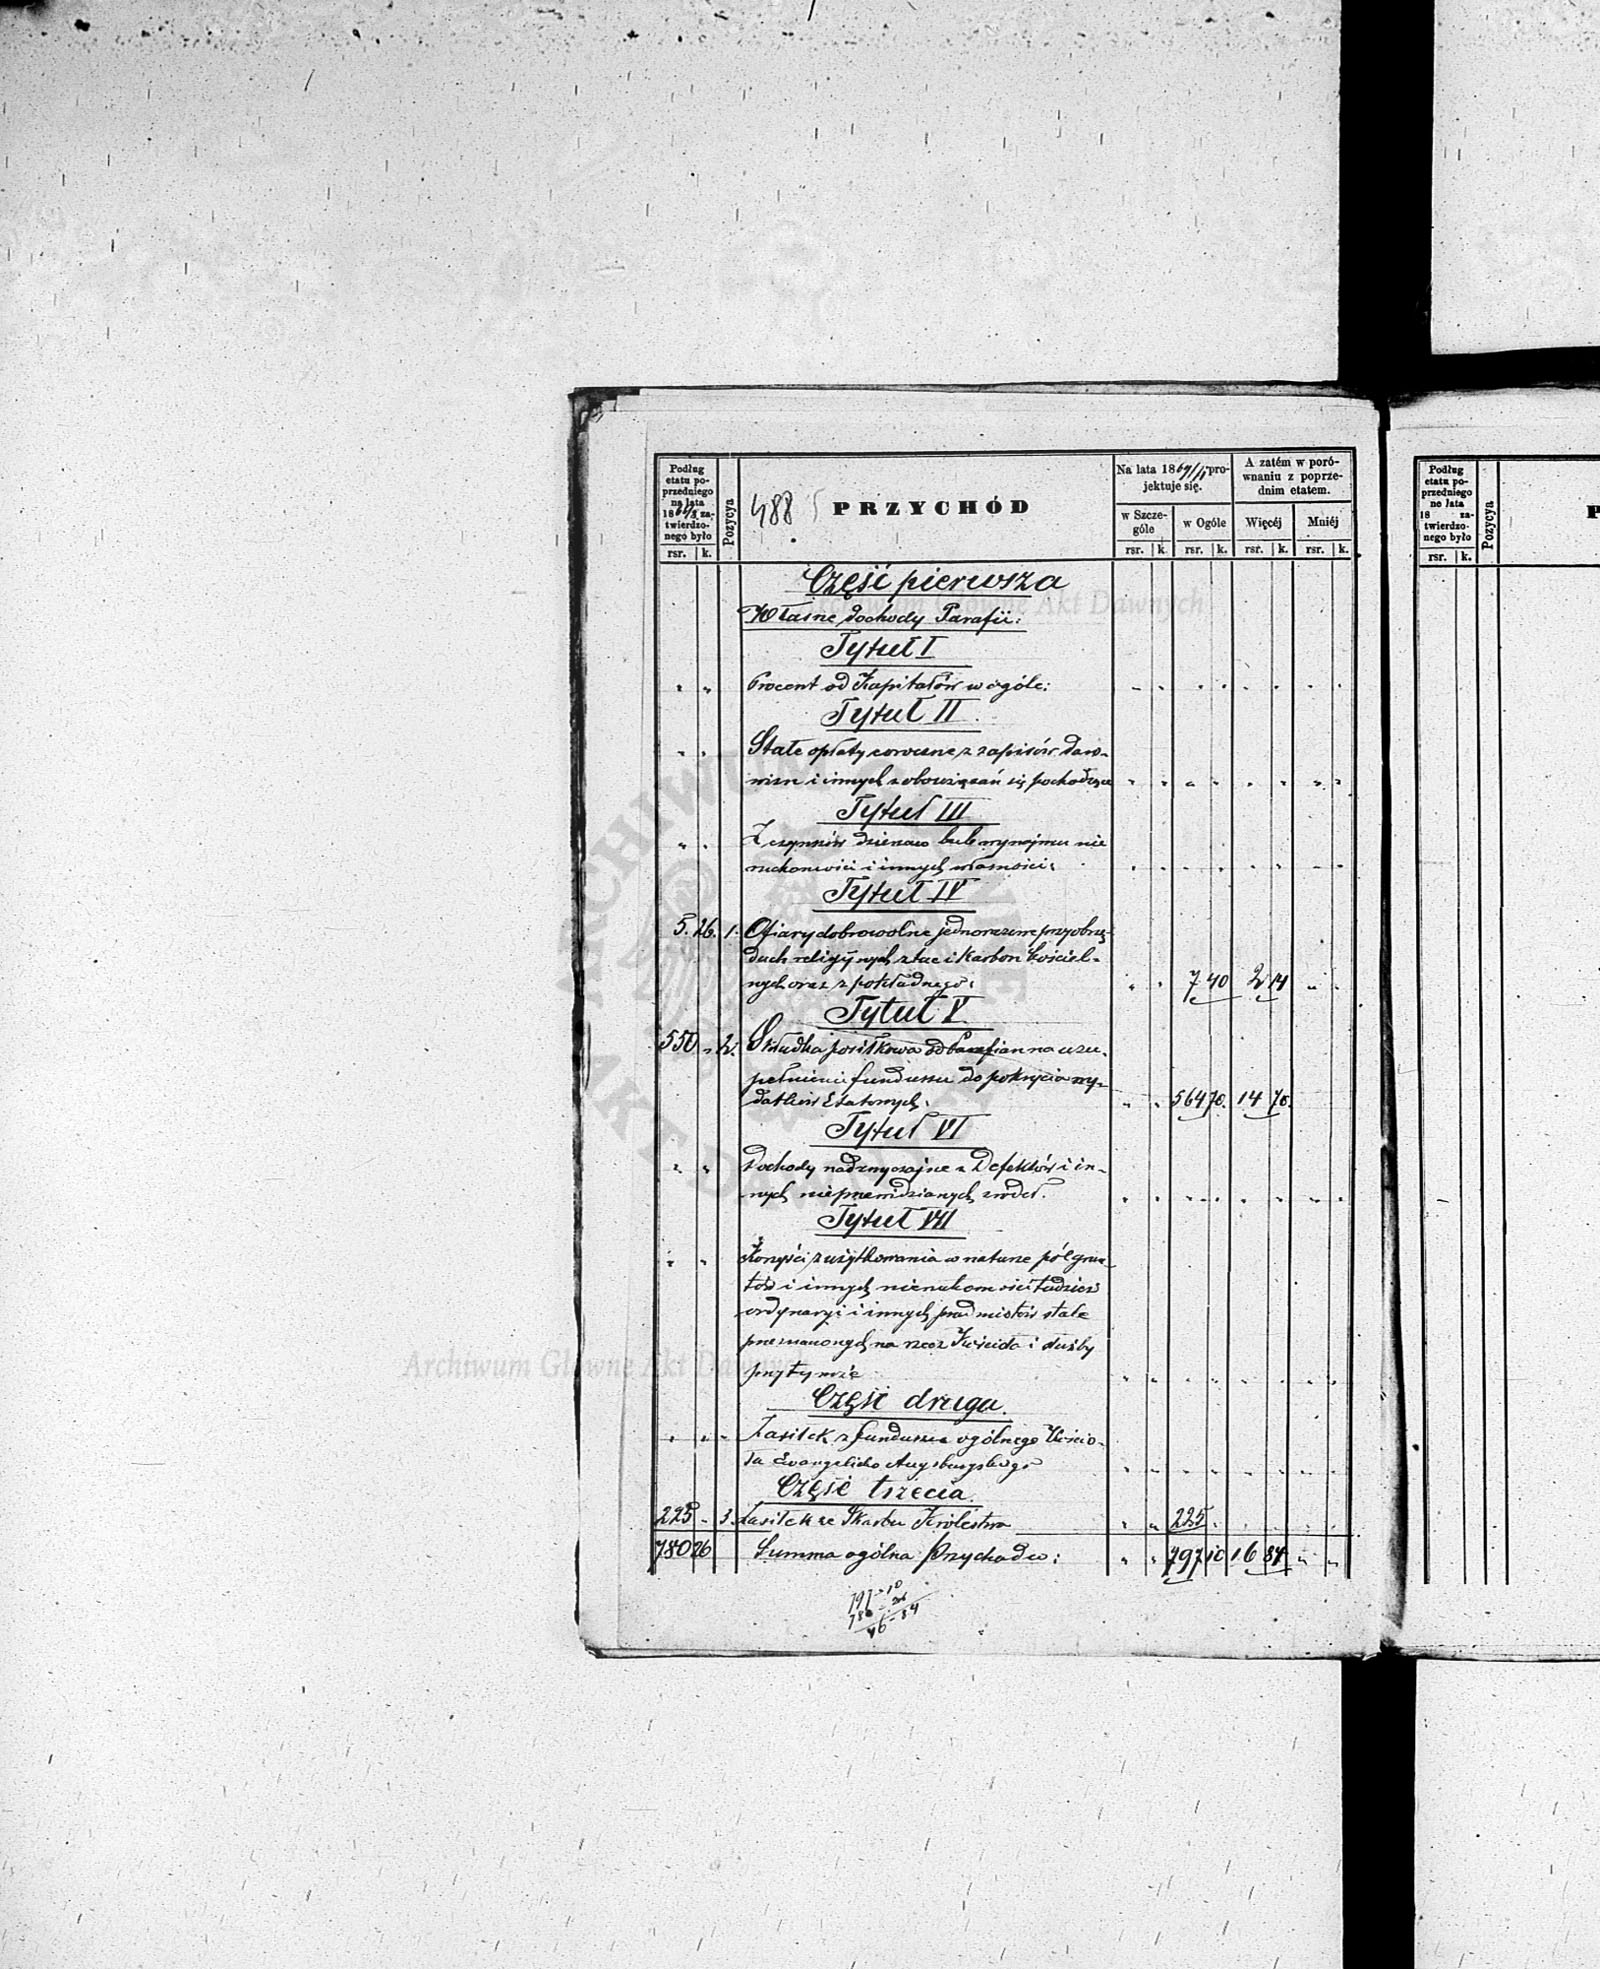 Podług etatu poprzedniego na lata 18 zatwierdzonego było
rsr. k.
Pozycya
488
PRZYCHÓD
Na lata 18 projektuje się.
w Szczególe
w Ogóle
A zatém w porównaniu z poprzednim etatem.
Więcéj
Mniéj
rsr. k. rsr. k. rsr. k. rsr. k.
Część pierwsza
Własne dochody Parafii:
Tytuł I
" " Procent od Kapitałów w ogóle: " " " " " " " "
Tytuł II
" " Stałe opłaty coroczne z zapisów daw-
nizn i innych zobowiązań się pochodzące " " " " " " " "
Tytuł III
" " Z czynszów dzierzaw lub wynajmu nie
ruchomości i innych własności: " " " " " " " "
Tytuł IV
5. 26. 1. Ofiary dobrowolne jednorazowe przy obrzę-
dach religijnych z tac i Karbon Kościel-
nych oraz z pokładnego: " " 7 40 2 14 " "
Tytuł V
550 " 2. Składka posiłkowa od Parafian na uzu-
pełnienie funduszu do pokrycia wy-
datków Etatowych: " " 564 70. 14 70.
Tytuł VI
" " Dochody nadzwyczajne z Defektów i in-
nych nieprzewidzianych źródeł. " " " " " " " "
Tytuł VII
" " Korzyści z użytkowania w naturze pól grun-
tów i innych nieruchomości tudzież
ordynaryi i innych przedmiotów stale
przeznaczonych na rzecz Kościoła i służby
przy tymże " " " " " " " "
Część druga.
" " " Zasiłek z funduszu ogólnego Kościo-
ła Ewangelicko Augsburgskiego " " " " " " " "
Część trzecia
225 " 3. Zasiłek ze Skarbu Królestwa " " 225 " " " " "
780 26 Summa ogólna Przychodu: " " 797 10 16 84 " "
797 - 10
780 - 26
16 - 84
Podług etatu poprzedniego na lata 18 zatwierdzonego było
rsr. k.
Pozycya
P
Archiwum Główne Akt Dawnych
Archiwum Główne Akt Dawnych
ARCHIWUM GŁÓWNE AKT DAWNYCH